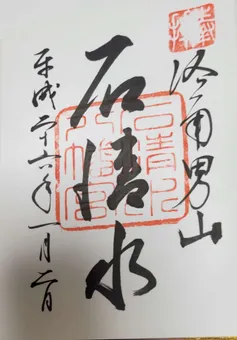 洛南男山
石清水
石清水
八幡宮
平成二十六年一月二日